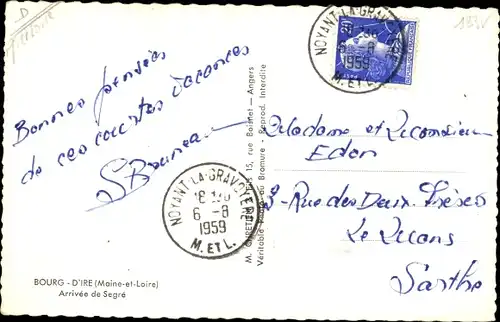 D
Bonnes pensées
de ces courtes vacances
S Bruneau
BOURG - D'IRE (Maine-et-Loire)
Arrivée de Segré
15, rue Boisnet — Angers
Véritable Photo au Bromure - Reprod. Interdite
NOYANT-LA-GRAVOYERE
18 H30
6 -8
1959
M. ET L.
NOYANT-LA-GRAVOYERE
6 -8
1959
M. ET L.
Madame et Monsieur
Eden
3 - Rue des Deux Frères
Le Mans
Sarthe